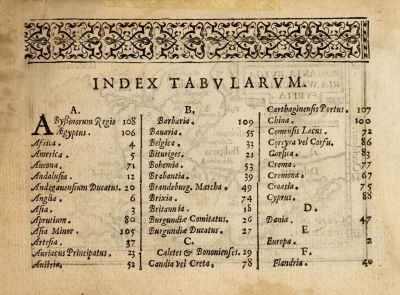 INDEX TABVLARVM.
A.
AByssinorum Regio 108
Ægyptus. 106
Africa. 4
America. 5
Ancona. 71
Andalusia. 12
Andegauensium Ducatus. 20
Anglia. 6
Asia. 3
Aprutium. 80
Asia Minor. 105
Artesia. 37
Auriacus Principatus. 23
Austria. 52
B.
Barbaria. 109
Bauaria. 55
Belgica. 33
Bituriges. 21
Bohemia. 53
Brabantia. 39
Brandeburg. Marcha. 49
Brixia. 74
Britannia. 18
Burgundiæ Comitatus. 26
Burgundiæ Ducatus. 27
C.
Caletes & Bononienses. 29
Candia vel Creta. 78
Carthaginensis Portus. 107
China. 100
Comensis Lacus. 72
Corcyra vel Corfu. 86
Corsica. 83
Crema. 77
Cremona. 67
Croatia. 75
Cyprus. 88
D.
Dania. 47
E
Europa. 2
F.
Flandria. 40